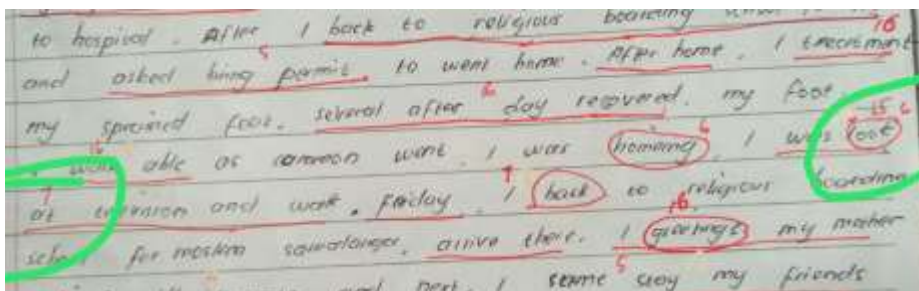 to hospital. After I back to religious boarding
and asked hing permit to went home. After home. I treatment
my sprained foot. several after day recovered. my foot.
able as common went. I was homing I was foot
at and work. Friday. I back to religious boarding
school for moslem samalanga. arrive there. I greetings my mother
and next. I same way my friends